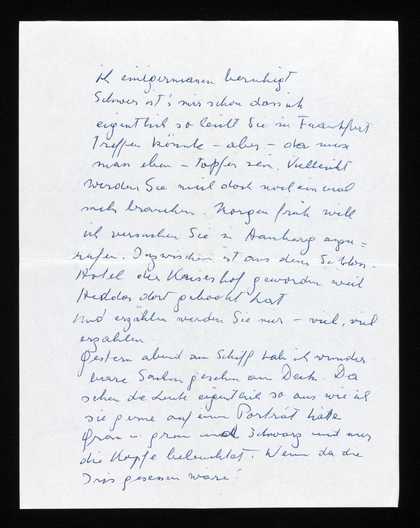 ich einigermassen beruhigt
Schwer ist's mir schon dass ich
eigentlich so leicht Sie in Frankfurt
Treffen könnte – aber – da muss
man eben – tapfer sein. Vielleicht
werden Sie mich doch noch einmal
mehr brauchen. Morgen früh will
ich versuchen Sie in Hamburg anzu=
rufen. Inzwischen ist aus dem Schloss
Hotel der Kaiserhof geworden weil
dort gehabt hat
Und erzählen werden Sie mir – viel, viel
erzählen
Gestern abend am Schiff hab ich wunder
bare Sachen gesehen am Deck. Da
sehen die Leute eigentlich so aus wie ich
sie gerne auf einem Porträt hätte
Grau in grau und Schwarz und nur
die Köpfe beleuchtet. Wenn da die
Iris gesessen wäre!